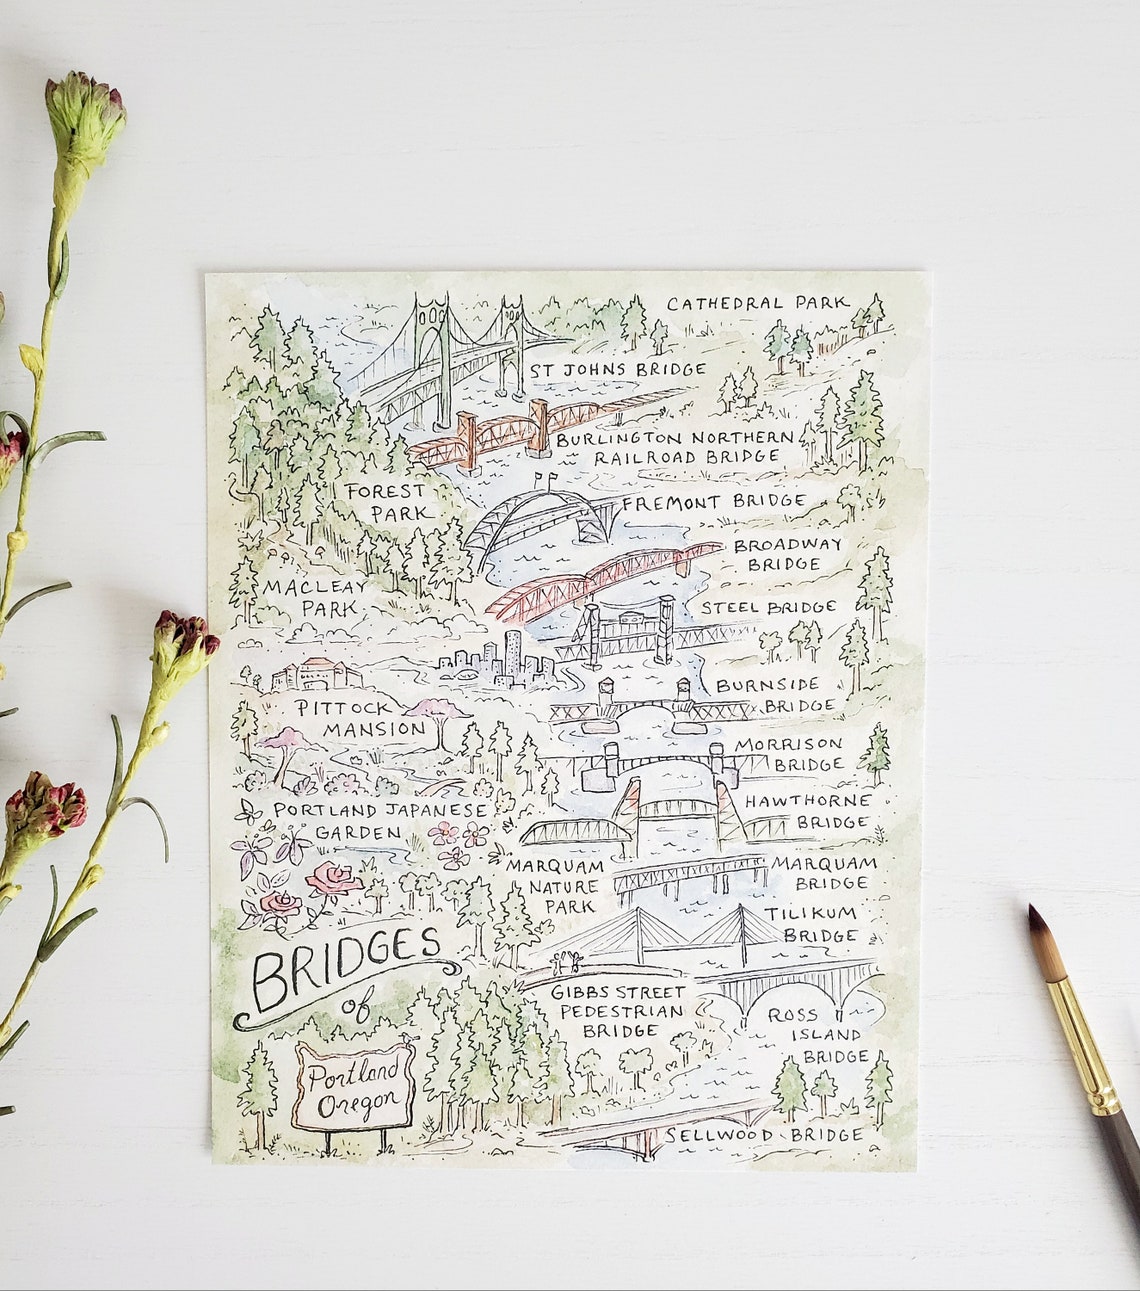 CATHEDRAL PARK
ST JOHNS BRIDGE
BURLINGTON NORTHERN
RAILROAD BRIDGE
FOREST
PARK
FREMONT BRIDGE
BROADWAY
BRIDGE
MACLEAY
PARK
STEEL BRIDGE
BURNSIDE
BRIDGE
PITTOCK
MANSION
MORRISON
BRIDGE
PORTLAND JAPANESE
GARDEN
HAWTHORNE
BRIDGE
MARQUAM
NATURE
PARK
MARQUAM
BRIDGE
TILIKUM
BRIDGE
BRIDGES
of
Portland
Oregon
GIBBS STREET
PEDESTRIAN
BRIDGE
ROSS
ISLAND
BRIDGE
SELLWOOD BRIDGE